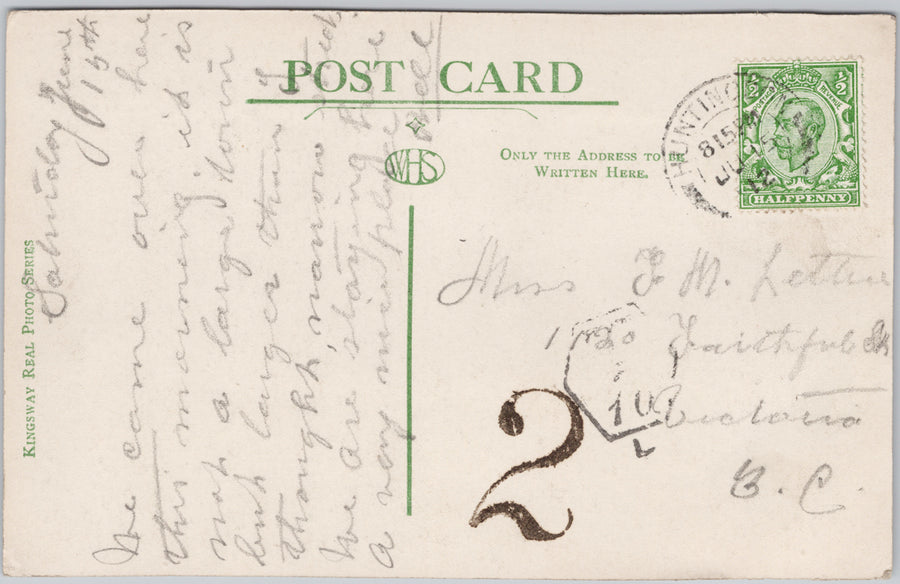 POST CARD
WHS
ONLY THE ADDRESS TO BE
WRITTEN HERE.
KINGSWAY REAL PHOTO SERIES
HUNTING
815 PM
JU 15
12
½ ½
POSTAGE REVENUE
HALFPENNY
Saturday June
15th
We came over here
this morning it is
not a large town
but larger than I
thought, narrow
We are staying
a very nice place
Miss F M. Lettice
Faithful St
Victoria
B. C.
10
L
2